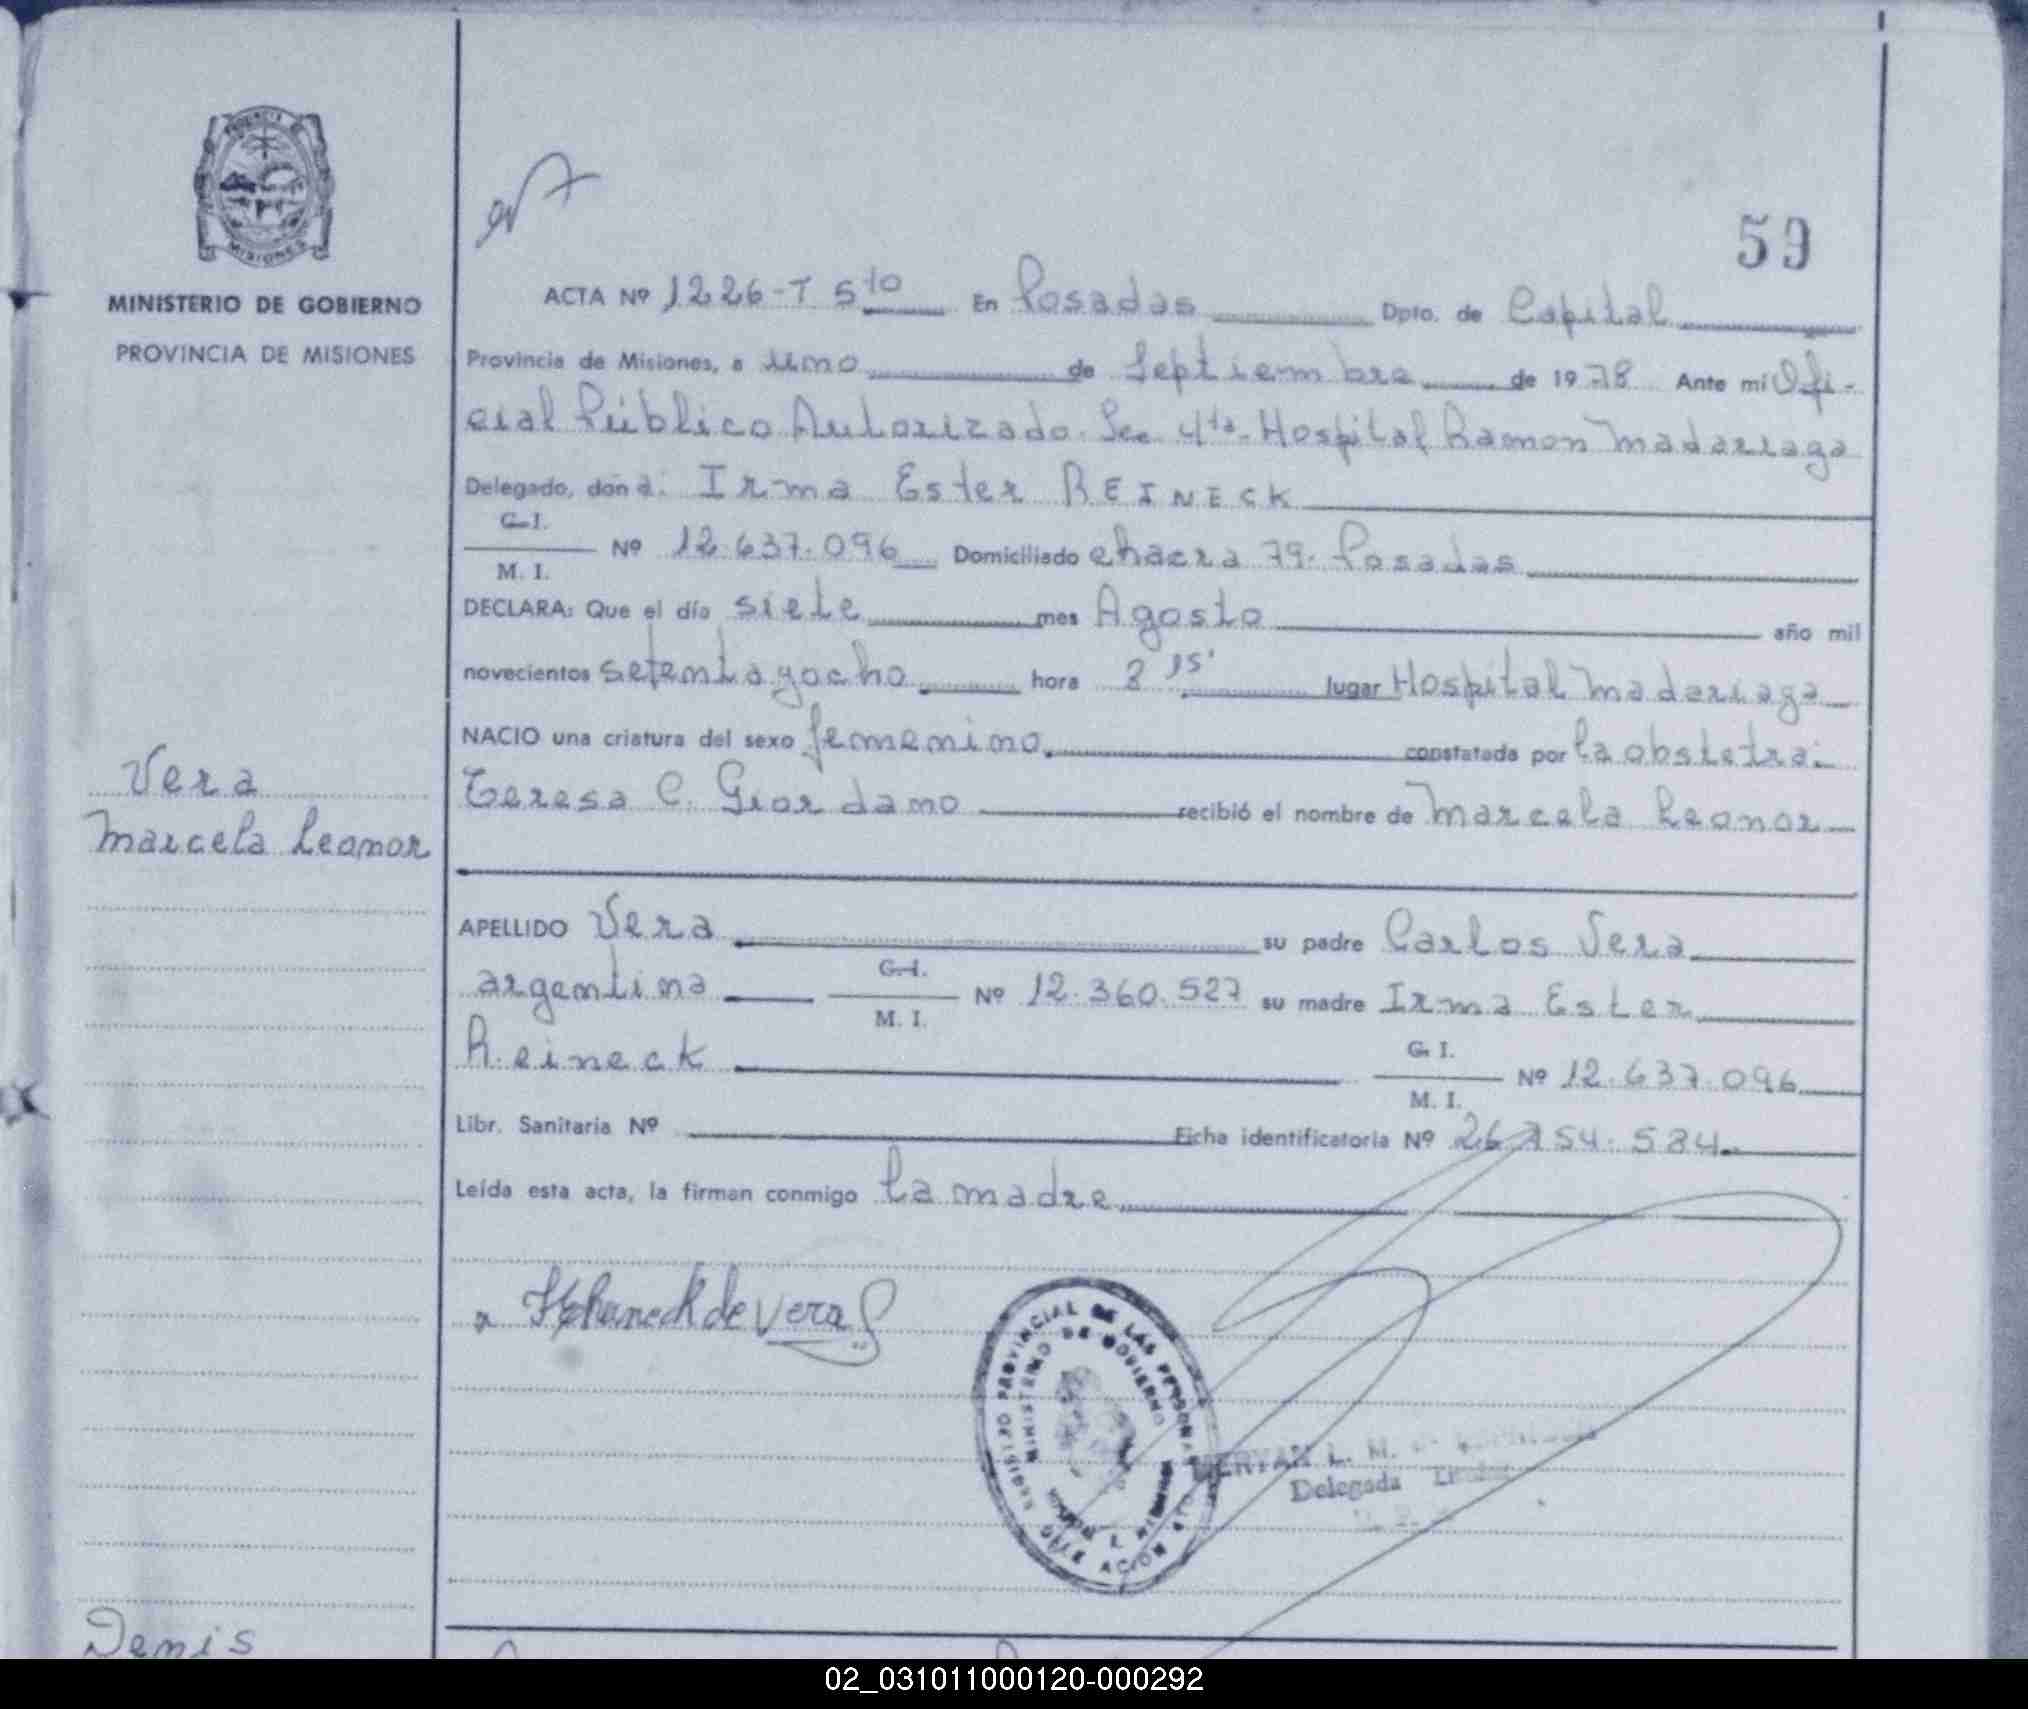 PROVINCIA DE
MISIONES
MINISTERIO DE GOBIERNO
PROVINCIA DE MISIONES
59
ACTA Nº 1226-T 5to En Posadas Dpto. de Capital
Provincia de Misiones, a uno de Septiembre de 1978 Ante mi Ofi-
cial Público Autorizado. Sec. 4ta. Hospital Ramon Madarriaga
Delegado, don a: Irma Ester REINECK
C.I.
M. I.
Nº 12.637.096 Domiciliado chacra 79. Posadas
DECLARA: Que el día siete mes Agosto año mil
novecientos setenta y ocho hora 8 15' lugar Hospital Madariaga
NACIO una criatura del sexo femenino. constatada por la obstetra:
Teresa C. Giordano recibió el nombre de Marcela Leonor
Vera
Marcela Leonor
APELLIDO Vera su padre Carlos Vera
argentina C.I. M. I. Nº 12.360.527 su madre Irma Ester
Reineck C. I. M. I. Nº 12.637.096
Libr. Sanitaria Nº Ficha identificatoria Nº 26.754.584
Leída esta acta, la firman conmigo la madre
de Vera
REGISTRO PROVINCIAL DE LAS PERSONAS
MINISTERIO DE GOBIERNO
L. M.
Delegada Titular
Denis
02_031011000120-000292